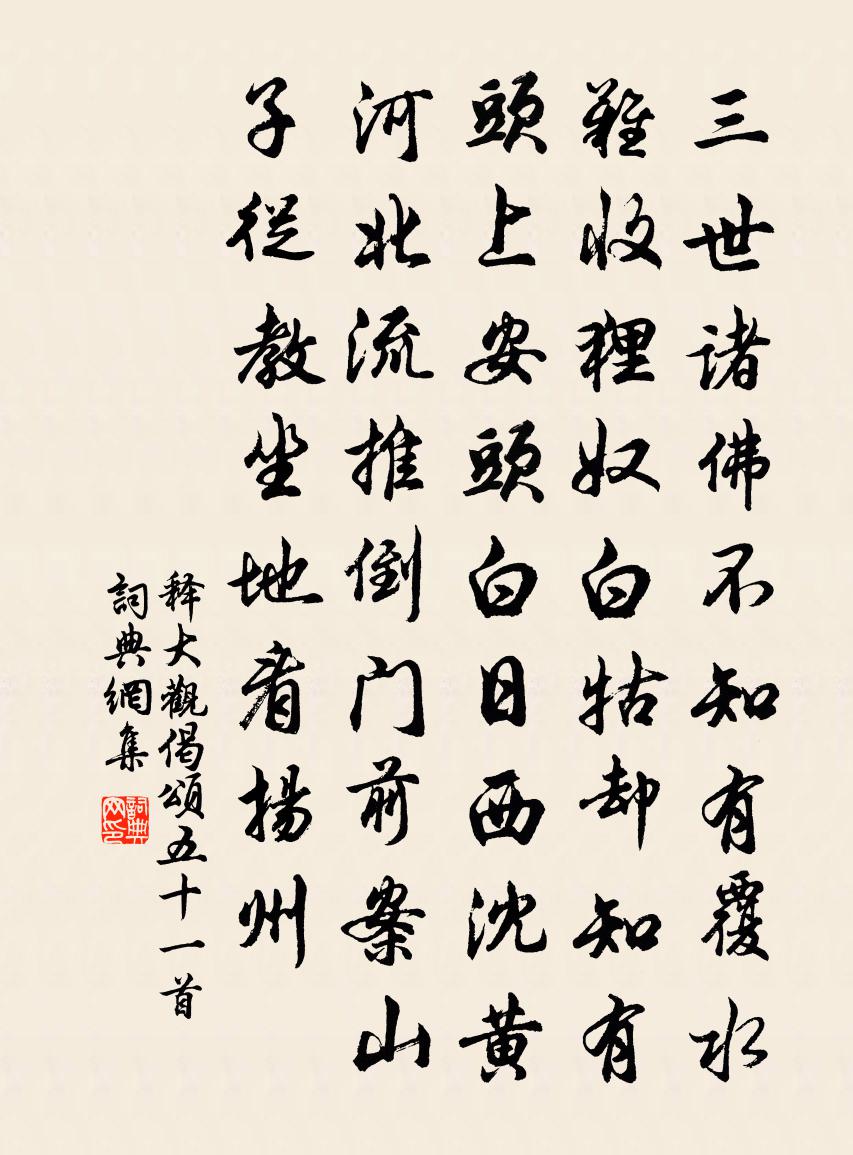 三世諸佛不知有覆水
難收狸奴白牯却知有
頭上安頭白日西沈黄
河北流推倒门前案山
子從教坐地看揚州
释大觀偈頌五十一首
詞典網集
詞典网印